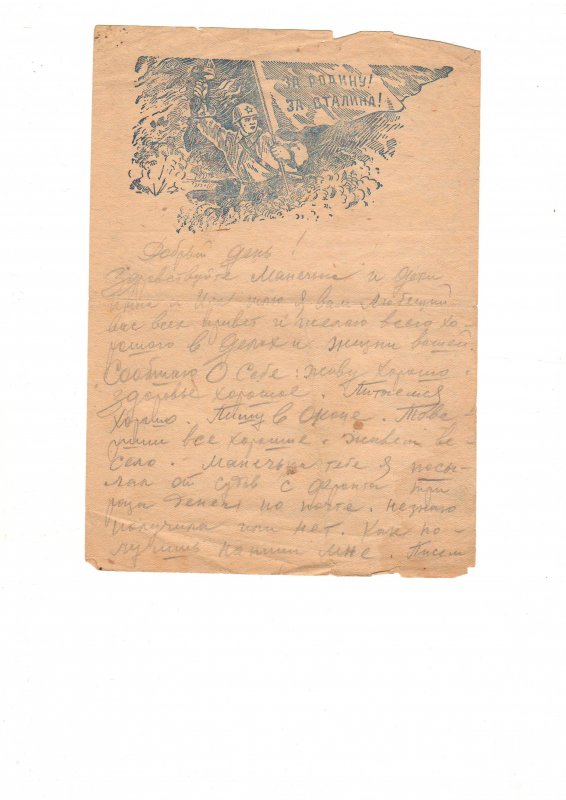 ЗА РОДИНУ!
ЗА СТАЛИНА!
Добрый день!
Здравствуйте Манечка и дети
шлю я вам Любещий
вас всех привет и желаю всего хо-
рошого в делах и жизни вашей.
Сообщаю О Себе: живу Хорошо.
здоровье хорошое. Питаемся
Хорошо. Пишу в Окопе. Това-
рищи все хорошие. живем ве-
село. Манечька тебе я посы-
лал от сюда с фронта три
раза денег по почте. незнаю
получила или нет. Как по-
лучишь напиши мне. Писем